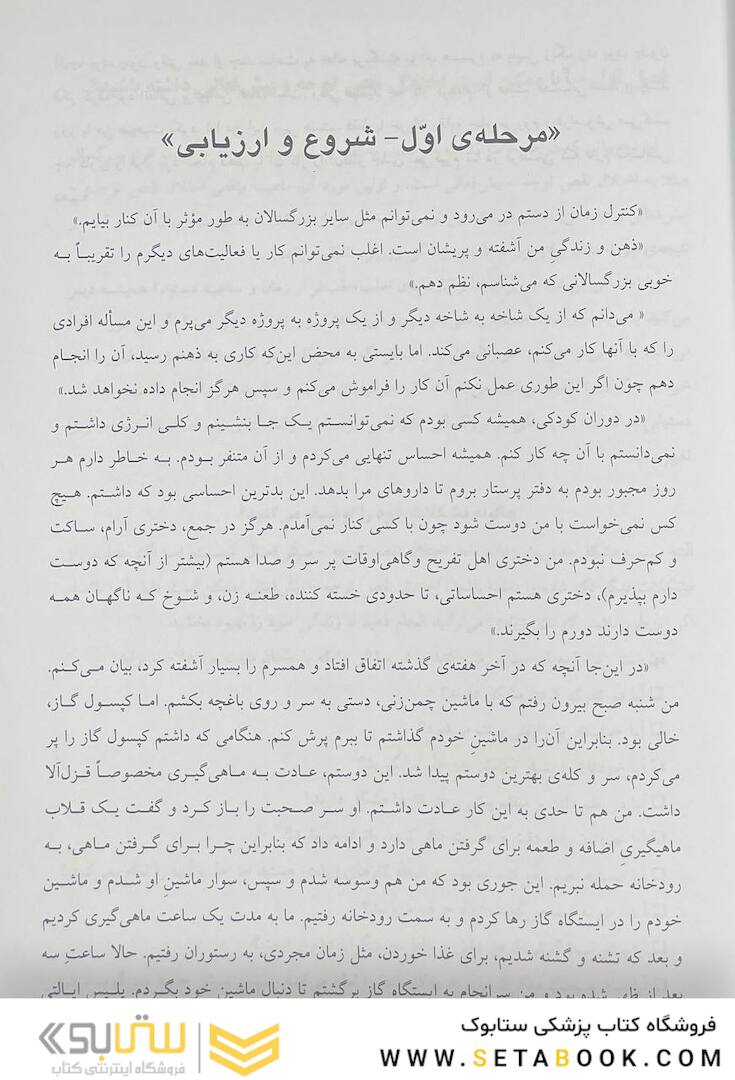 «مرحله‌ی اوّل- شروع و ارزیابی»
«کنترل زمان از دستم در می‌رود و نمی‌توانم مثل سایر بزرگسالان به طور مؤثر با آن کنار بیایم.»
«ذهن و زندگیِ من آشفته و پریشان است. اغلب نمی‌توانم کار یا فعالیت‌های دیگرم را تقریباً به
خوبی بزرگسالانی که می‌شناسم، نظم دهم.»
« می‌دانم که از یک شاخه به شاخه دیگر و از یک پروژه به پروژه دیگر می‌پرم و این مسأله افرادی
را که با آنها کار می‌کنم، عصبانی می‌کند. اما بایستی به محض این‌که کاری به ذهنم رسید، آن را انجام
دهم چون اگر این طوری عمل نکنم آن کار را فراموش می‌کنم و سپس هرگز انجام داده نخواهد شد.»
«در دوران کودکی، همیشه کسی بودم که نمی‌توانستم یک جا بنشینم و کلی انرژی داشتم و
نمی‌دانستم با آن چه کار کنم. همیشه احساس تنهایی می‌کردم و از آن متنفر بودم. به خاطر دارم هر
روز مجبور بودم به دفتر پرستار بروم تا داروهای مرا بدهد. این بدترین احساسی بود که داشتم. هیچ
کس نمی‌خواست با من دوست شود چون با کسی کنار نمی‌آمدم. هرگز در جمع، دختری آرام، ساکت
و کم‌حرف نبودم. من دختری اهل تفریح وگاهی‌اوقات پر سر و صدا هستم (بیشتر از آنچه که دوست
دارم بپذیرم)، دختری هستم احساساتی، تا حدودی خسته کننده، طعنه زن، و شوخ که ناگهان همه
دوست دارند دورم را بگیرند.»
«در این‌جا آنچه که در آخر هفته‌ی گذشته اتفاق افتاد و همسرم را بسیار آشفته کرد، بیان می‌کنم.
من شنبه صبح بیرون رفتم که با ماشین چمن‌زنی، دستی به سر و روی باغچه بکشم. اما کپسول گاز،
خالی بود. بنابراین آن‌را در ماشینِ خودم گذاشتم تا ببرم پرش کنم. هنگامی که داشتم کپسول گاز را پر
می‌کردم، سر و کله‌ی بهترین دوستم پیدا شد. این دوستم، عادت به ماهی‌گیری مخصوصاً قزل‌آلا
داشت. من هم تا حدی به این کار عادت داشتم. او سر صحبت را باز کرد و گفت یک قلاب
ماهیگیریِ اضافه و طعمه برای گرفتن ماهی دارد و ادامه داد که بنابراین چرا برای گرفتن ماهی، به
رودخانه حمله نبریم. این جوری بود که من هم وسوسه شدم و سپس، سوار ماشینِ او شدم و ماشین
خودم را در ایستگاه گاز رها کردم و به سمت رودخانه رفتیم. ما به مدت یک ساعت ماهی‌گیری کردیم
و بعد که تشنه و گشنه شدیم، برای غذا خوردن، مثل زمان مجردی، به رستوران رفتیم. حالا ساعتِ سه
بعد از ظهر شده بود و من سرانجام به ایستگاه گاز برگشتم تا دنبال ماشین خود بگردم. پلیس ایالتی
فروشگاه کتاب پزشکی ستابوک
WWW.SETABOOK.COM
ستابوک
فروشگاه اینترنتی کتاب